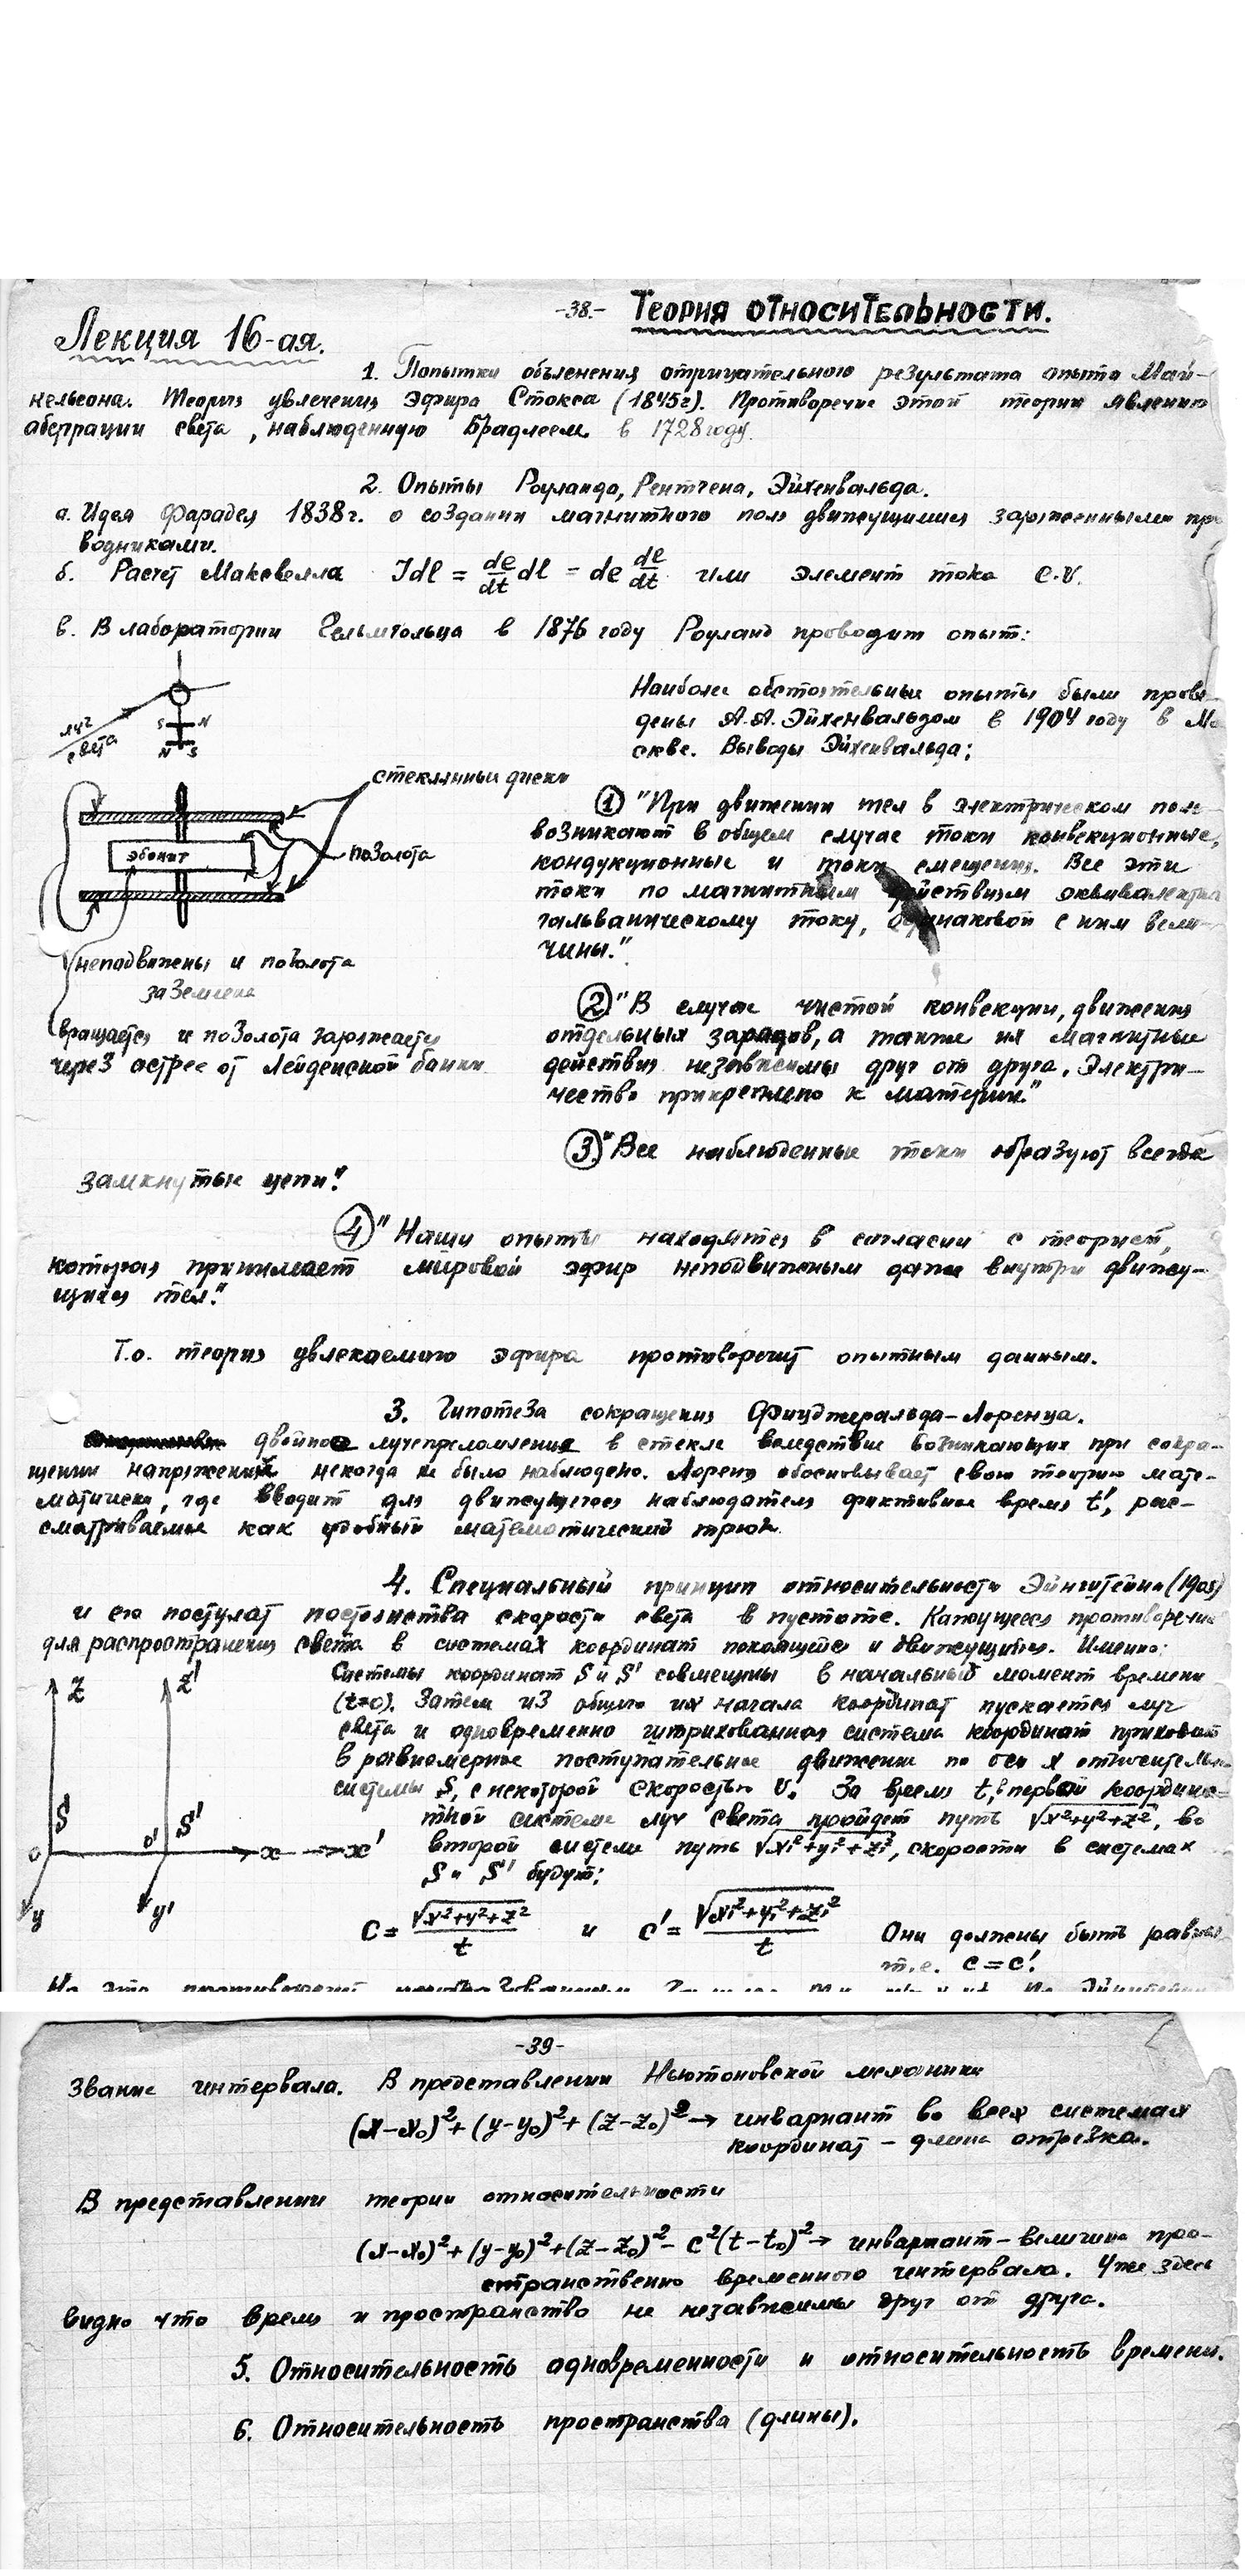 -38.- Теория относительности.
Лекция 16-ая.
1. Попытки объяснения отрицательного результата опыта Май-
кельсона. Теория увлечения эфира Стокса (1845г). Противоречие этой теории явлению
аберрации света, наблюденную Брадлеем в 1728 году.
2. Опыты Роуланда, Рентгена, Эйхенвальда.
а. Идея Фарадея 1838г. о создании магнитного поля движущимися заряженными про
водниками.
б. Расчет Максвелла Idl = de/dt dl = de dl/dt или элемент тока e.v.
в. В лаборатории Гельмгольца в 1876 году Роуланд проводит опыт:
луч
света
S N
N S
стеклянные диски
эбонит
позолота
неподвижены и позолота
заземлена
вращается и позолота заряжается
через острее от Лейденской банки
Наиболее обстоятельные опыты были прове-
дены А.А. Эйхенвальдом в 1904 году в Мо
скве. Выводы Эйхенвальда:
① "При движении тел в электрическом поле
возникают в общем случае токи конвекционные,
кондукционные и токи смещения. Все эти
токи по магнитным действиям эквивалентны
гальваническому току, одинаковой с ним вели-
чины."
② "В случае чистой конвекции, движения
отдельных зарядов, а также их магнитные
действия независимы друг от друга. Электри-
чество прикреплено к материи."
③ "Все наблюденные токи образуют всегда
замкнутые цепи."
④ "Наши опыты находятся в согласии с теорией,
которая принимает мировой эфир неподвижным даже внутри движу-
щихся тел."
Т.о. теория увлекаемого эфира противоречит опытным данным.
3. Гипотеза сокращения Фицджеральда-Лоренца.
двойное лучепреломление в стекле вследствие возникающих при сокра-
щении напряжений никогда не было наблюдено. Лоренц обосновывает свою теорию мате-
матически, где вводит для движущегося наблюдателя фиктивное время t', рас-
сматриваемые как удобный математический трюк.
4. Специальный принцип относительности Эйнштейна (1905)
и его постулат постоянства скорости света в пустоте. Кажущееся противоречие
для распространения света в системах координат покоящейся и движущийся. Именно:
Системы координат S и S' совмещены в начальный момент времени
(t=0). Затем из общего их начала координат пускается луч
света и одновременно штрихованная система координат приходит
в равномерное поступательное движение по оси x относительно
системы S, с некоторой скоростью v. За время t, в первой координа-
тной системе луч света пройдет путь √x²+y²+z², во
второй системе путь √x₁²+y₁²+z₁², скорости в системах
S и S' будут:
z z'
S S'
o o' x x'
y y'
c = √x²+y²+z² / t и c' = √x₁²+y₁²+z₁² / t Они должены быть равны
т.е. c = c'.
-39-
звание интервала. В представлении Ньютоновской механики
(x-x₀)²+(y-y₀)²+(z-z₀)² → инвариант во всех системах
координат - длина отрезка.
В представлении теории относительности
(x-x₀)²+(y-y₀)²+(z-z₀)²- c²(t-t₀)² → инвариант-величина про-
странственно временного интервала. Уже здесь
видно что время и пространство не независимы друг от друга.
5. Относительность одновременности и относительность времени.
6. Относительность пространства (длины).